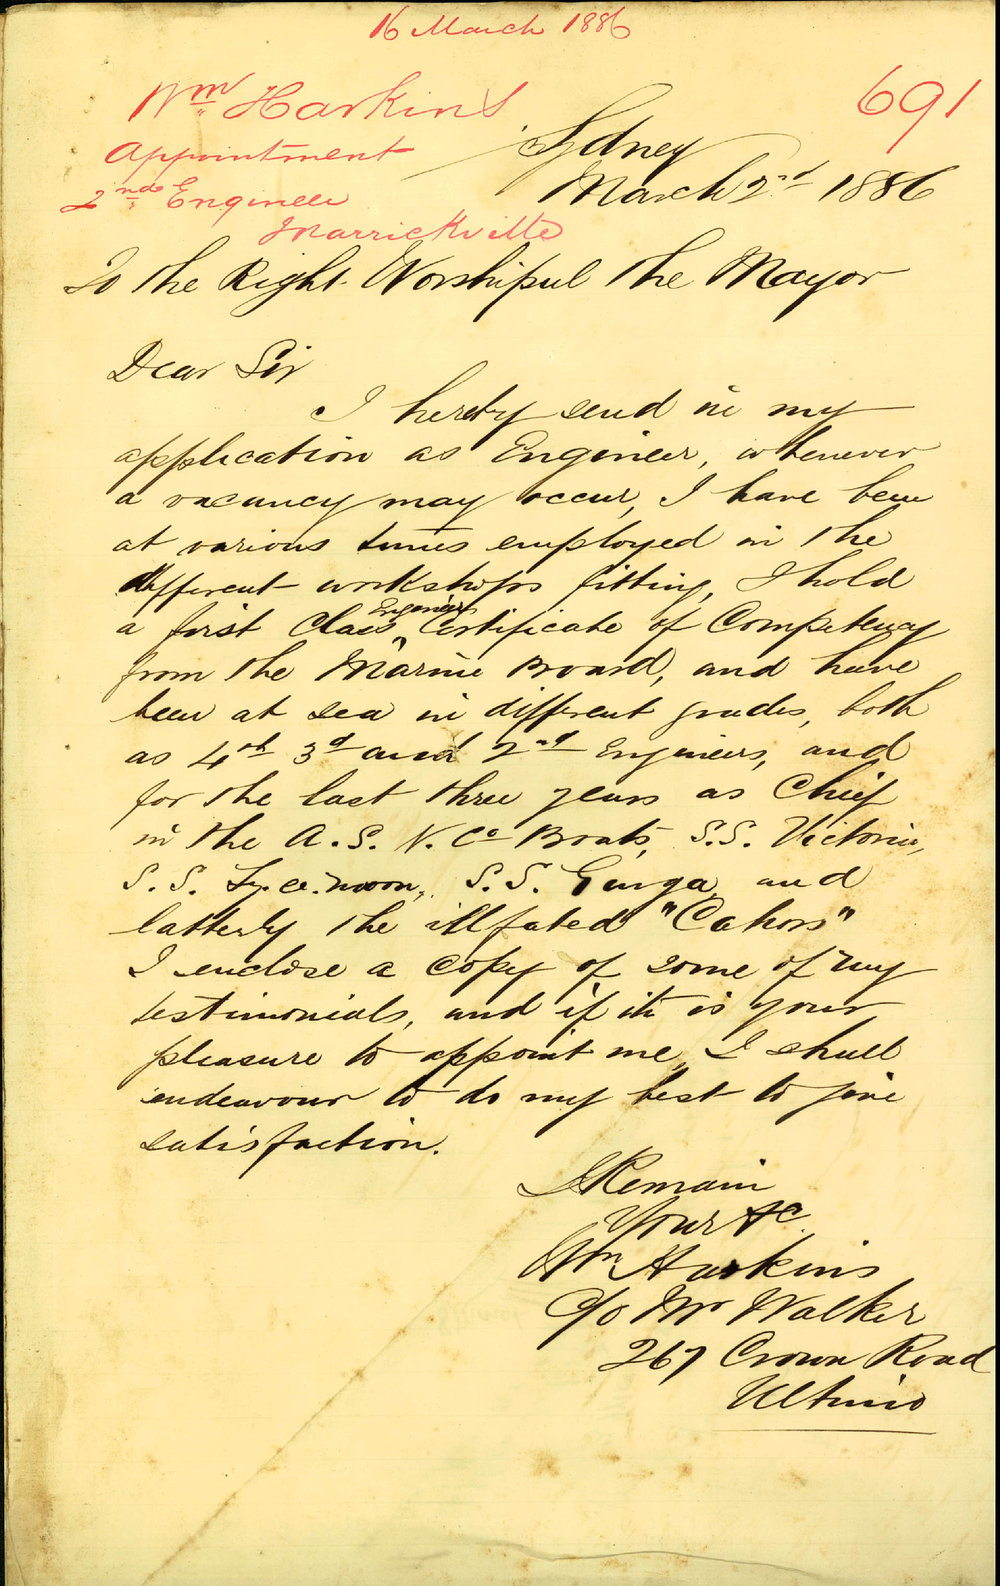 16 March 1886
Wm Harkins
691
Appointment
2nd Engineer
Marrickville
Sydney
March 2nd 1886
To the Right Worshipul the Mayor
Dear Sir
I hereby send in my
application as Engineer, whenever
a vacancy may occur, I have been
at various times employed in the
different workshops fitting, I hold
a first Class Engineers Certificate of Competency
from the Marine Board, and have
been at sea in different grades, both
as 4th 3d and 2nd Engineers, and
for the last three years as Chief
in the A.S.N. Co Boats, S.S. Victoria,
S.S. Ly.ee.moon, S.S. Gunga, and
latterly the illfated "Cahors"
I enclose a copy of some of my
testimonials, and if it is your
pleasure to appoint me, I shall
endeavour to do my best to give
satisfaction.
I Remain
Your &c
Wm Harkins
C/o Mr Walker
267 Crown Road
Ultimo